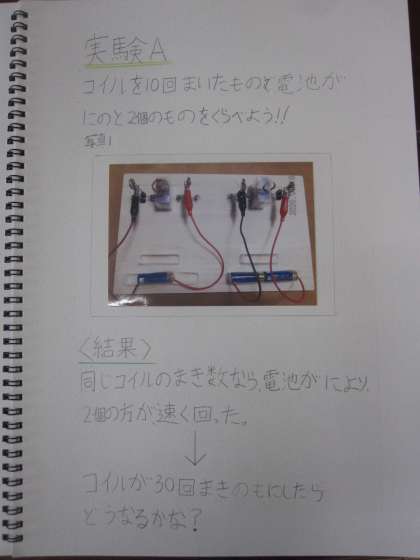 実験A
コイルを10回まいたもので電池が
1このと2個のものをくらべよう!!
写真1
<結果>
同じコイルのまき数なら、電池が1こより、
2個の方が速く回った。
↓
コイルが30回まきのもにしたら
どうなるかな?